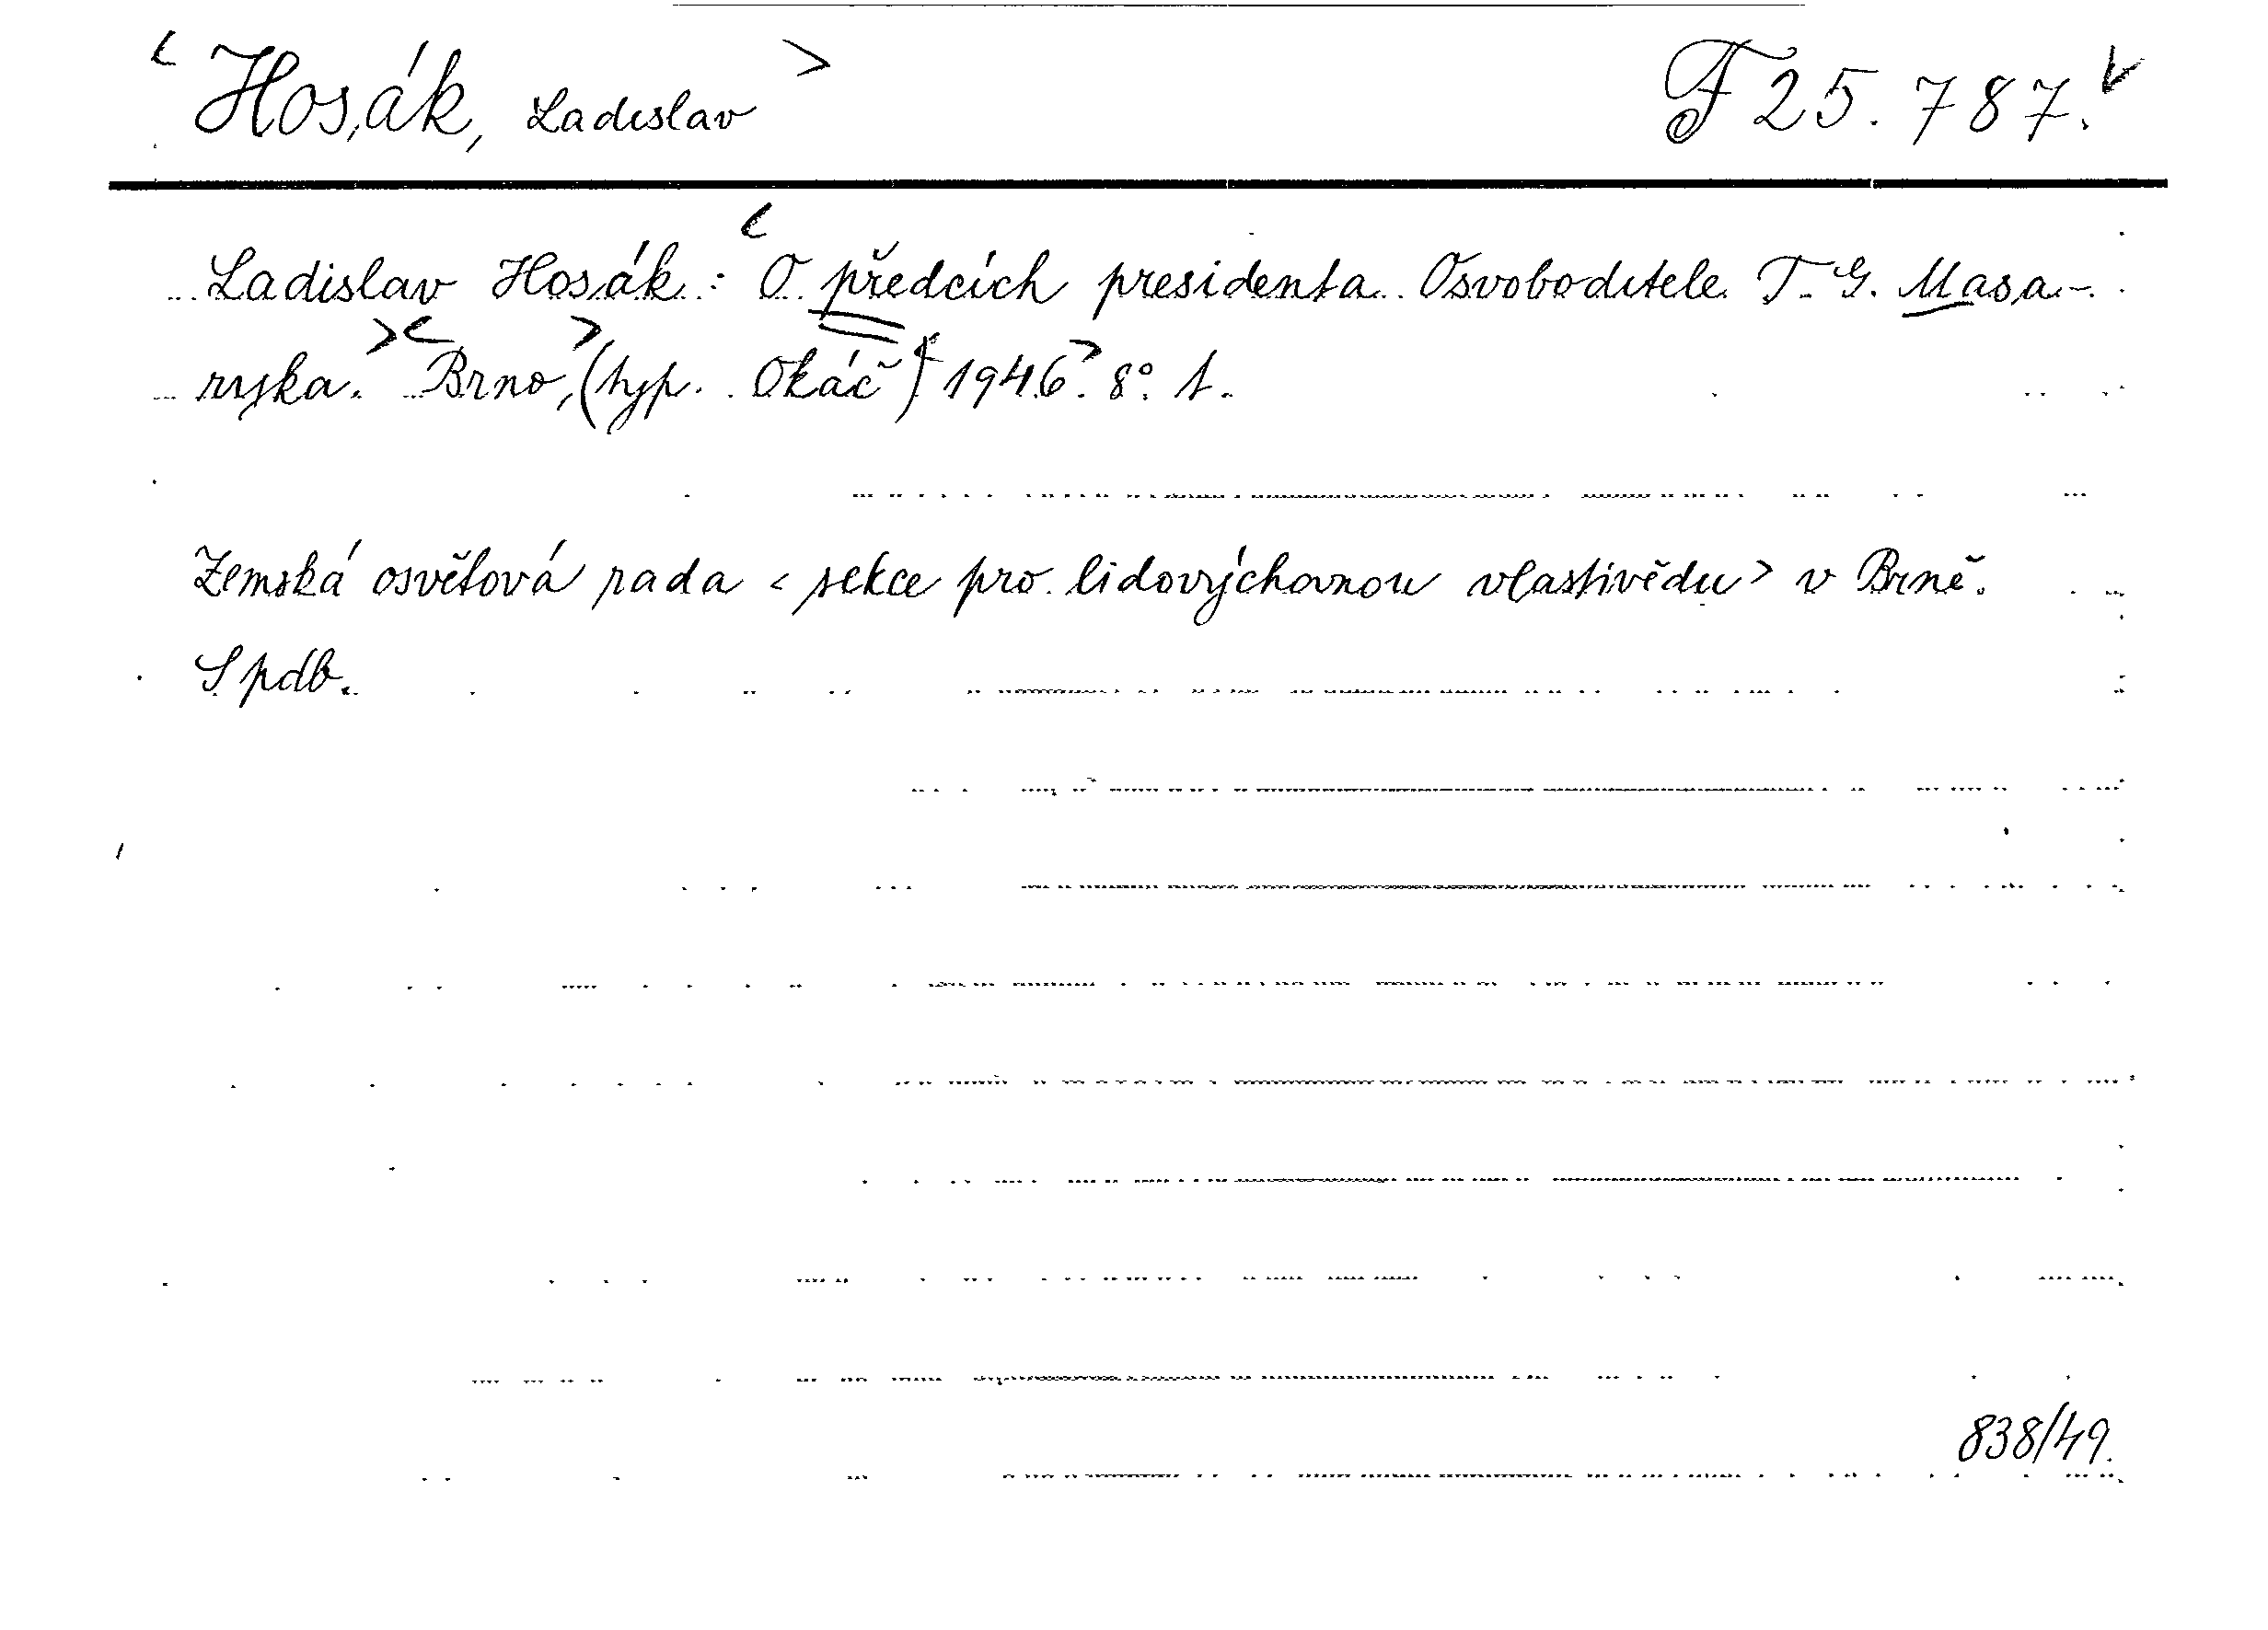 < Hosák, Ladislav > F 25.787.
Ladislav Hosák: < O předcích presidenta Osvoboditele T. G. Masa-
ryka. >< Brno, > (typ. Okáč) < 1946 >. 8°. 1.
Zemská osvětová rada < sekce pro lidovýchovnou vlastivědu > v Brně.
S pdb.
838/49.